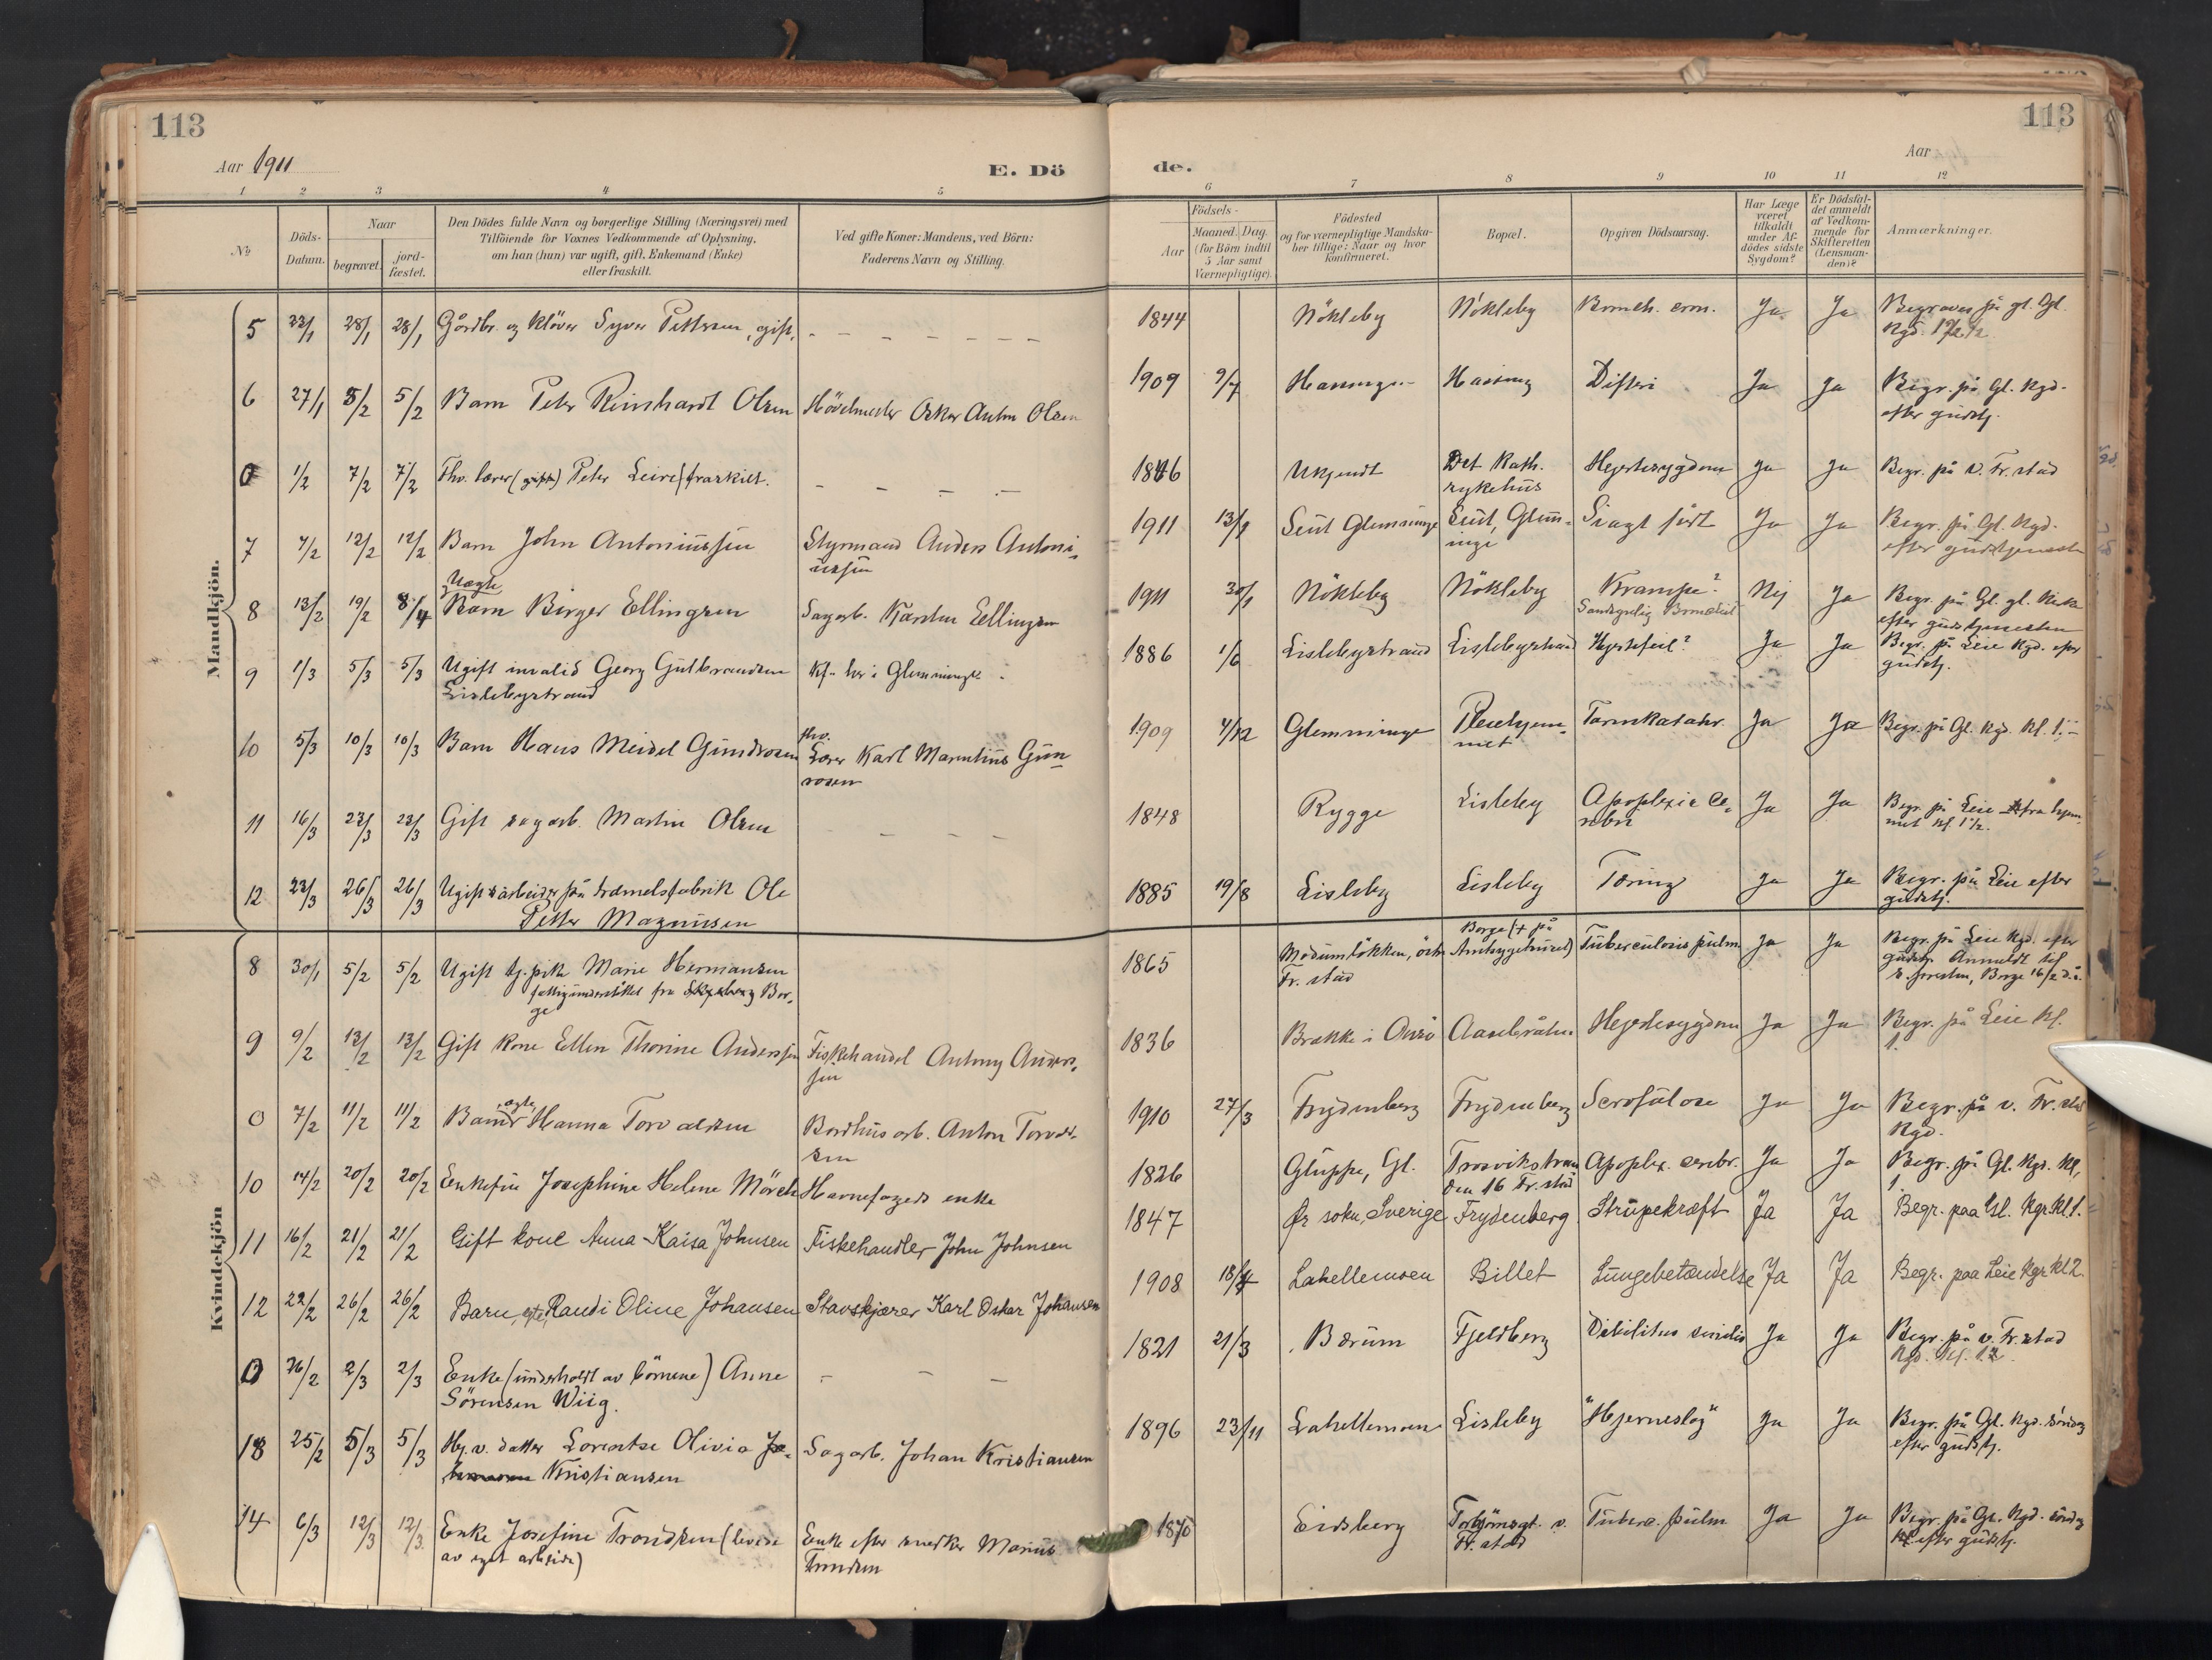 113
Aar 1911
E. Dö
1 2 3 4 5
No.
Döds-
Datum.
Naar
begravet.
jord-
fæstet.
Den Dödes fulde Navn og borgerlige Stilling (Næringsvei) med
Tilföiende for Voxnes Vedkommende af Oplysning,
om han (hun) var ugift, gift, Enkemand (Enke)
eller fraskilt.
Ved gifte Koner: Mandens, ved Börn:
Faderens Navn og Stilling.
Mandkjön.
5 28/1 28/1 Gårdbr. og Syver Pettersen, gift.
6 27/1 5/2 5/2 Barn Peter Reinhardt Olsen Oskar Anton Olsen
0 1/2 7/2 7/2 Fhv. lærer (gift) Peter Leire fraskilt.
7 12/2 12/2 Barn John Antoniussen Styrmand Anders Antoni-
ussen
Uægte
8 13/2 19/2 8/4 Barn Birger Ellingsen Sagarb. Karsten Ellingsen
9 1/3 5/3 5/3 Ugift invalid Georg Gulbrandsen i Glemminge
Lislebystrand
10 5/3 10/3 10/3 Barn Hans Meidel Gundrosen fhv.
Lærer Karl Marentius Gun-
rosen
11 16/3 23/3 23/3 Gift sagarb. Martin Olsen
12 23/3 26/3 26/3 Ugift arbeider på fabrik Ole
Petter Magnusen
Kvindekjön
8 30/1 5/2 5/2 Ugift tj.pike Marie Hermansen
fattigunderstøttet fra Bor-
ge
9 9/2 13/2 13/2 Gift kone Ellen Thorine Anderssen Fiskehandel Antony Anders-
sen
0 7/2 11/2 11/2 Barn ægte Hanna Torvaldsen Bordhusarb. Anton Torvald-
sen
10 14/2 20/2 20/2 Enkefru Josephine Helene Mörch Havnefogeds enke
11 16/2 21/2 21/2 Gift kone Anna Kaisa Johnsen Fiskehandler John Johnsen
12 22/2 26/2 26/2 Barn, egte, Randi Oline Johansen Stavskjærer Karl Oskar Johansen
0 26/2 2/3 2/3 Enke (underholdt av börnene) Anne
Sörensen Wiig.
13 25/2 5/3 5/3 Hj.v. datter Lorentse Olivia Jo-
hansen Kristiansen Sagarb. Johan Kristiansen
14 6/3 12/3 12/3 Enke Josefine Trondsen (levede
av eget arbeide) Enke efter snedker Marius
Trondsen
113
Aar
de.
6 7 8 9 10 11 12
Födsels-
Aar
Maaned. Dag.
(for Börn indtil
5 Aar samt
Værnepligtige).
Födested
og for værnepligtige Mandska-
ber tillige: Naar og hvor
konfirmeret.
Bopæl.
Opgiven Dödsaarsag.
Har Læge
været
tilkaldt
under Af-
dödes sidste
Sygdom?
Er Dödsfal-
det anmeldt
af Vedkom-
mende for
Skifteretten
(Lensman-
den)?
Anmærkninger.
1844 Nökleby Nökleby Bronch. Ja Ja Begraves på gl. Gl.
Kgd.
1909 9/7 Difteri Ja Ja Begr. på Gl. Kgd.
efter gudstj.
1846 Ukjendt Det Kath.
sykehus Hjertesygdom Ja Ja Begr. på v. Fr.stad
1911 13/1 Seut Glemminge Seut, Glem-
inge Svagt født Ja Ja Begr. på Gl. Kgd.
efter gudstjenesten
1911 30/1 Nökleby Nökleby Krampe?
Sandsynlig Nej Ja Begr. på Gl. gl.
efter gudstjenesten
1886 1/6 Lislebystrand Lislebystrand Hjertefeil? Ja Ja Begr. på Leie Kgd. efter
gudstj.
1909 4/12 Glemminge Pleiehjem-
met Tarmkatahr. Ja Ja Begr. på Gl. Kgd. Kl. 1
1848 Rygge Lisleby Apoplexia Ce-
rebri Ja Ja Begr. på Leie fra hjem-
met kl. 1½.
1885 19/8 Lisleby Lisleby Tæring Ja Ja Begr. på Leie efter
gudstj.
1865 Modumløkken, østre
Fr.stad Borge (+ på
Amtsygehuset) Tuberculosis pulm. Ja Ja Begr. på Leie Kgd. efter
gudstj. Anmeldt til
s. presten, Borge 16/2 d.å.
1836 Brække i Onsö Hjertesygdom Ja Ja Begr. på Leie Kl.
1.
1910 27/3 Frydenberg Frydenberg Scrofulose Ja Ja Begr. på v. Fr.stad
Kgd.
1826 Gluppe, Gl. Trosvikstran
den 16 Fr.stad Apoplex. cerebr. Ja Ja Begr. på Gl. Kgd. Kl.
1.
1847 Ør sokn, Sverige Frydenberg Strupekræft Ja Ja Begr. paa Gl. Kgr. Kl 1.
1908 18/4 Lahellemoen Billet Lungebetændelse Ja Ja Begr. paa Leie Kgr Kl 2.
1821 21/3 Bærum Fjeldberg Debilitas senilis Ja Ja Begr. på v. Fr.stad
Kgd. Kl. 12.
1896 23/11 Lahellemoen Lisleby "Hjerneslag" Ja Ja Begr. på Gl. Kgd. söndag
efter gudstj.
1870 Eidsberg Torbjörnsgt. v.
Fr.stad Tuberc. pulm Ja Ja Begr. på Gl. Kgd. söndag
efter gudstj.